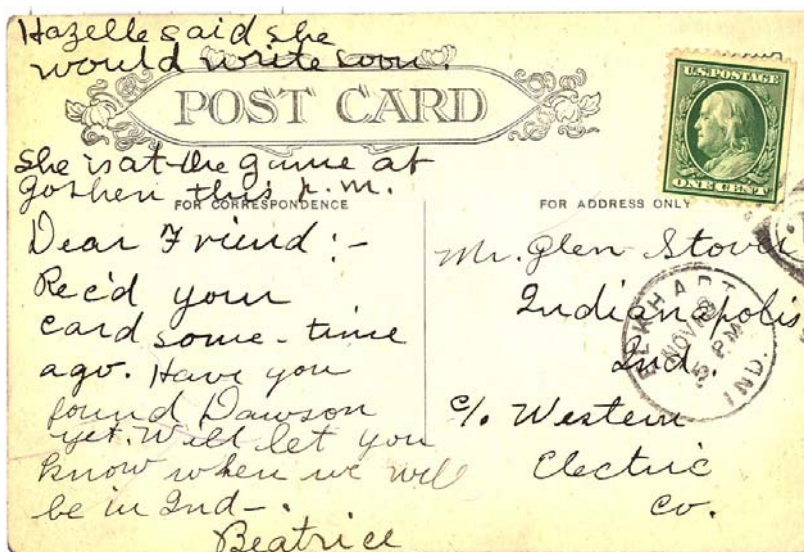 Hazelle said she
would write soon.
POST CARD
U.S. POSTAGE
ONE CENT
she is at the game at
Goshen this p.m.
FOR CORRESPONDENCE
Dear Friend:-
Rec'd your
card some-time
ago. Have you
found Dawson
yet. Will let you
know when we will
be in Ind-.
Beatrice
FOR ADDRESS ONLY
Mr. Glen Stover
Indianapolis
Ind.
c/o Western
Electric
Co.
ELKHART
NOV
5 PM
IND.